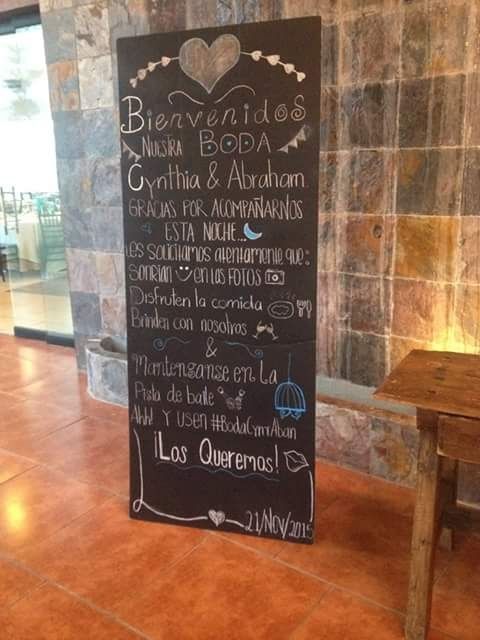 Bienvenidos
Nuestra BODA
Cynthia & Abraham
GRACIAS POR ACOMPAÑARNOS
ESTA NOCHE...
Les solicitamos atentamente que:
sonrian en las FOTOS
Disfruten la comida
Brinden con nosotros
&
Mantenganse en La
Pista de baile
Ahh! Y usen #BodaCymrAban
¡Los Queremos!
21/Nov/2015